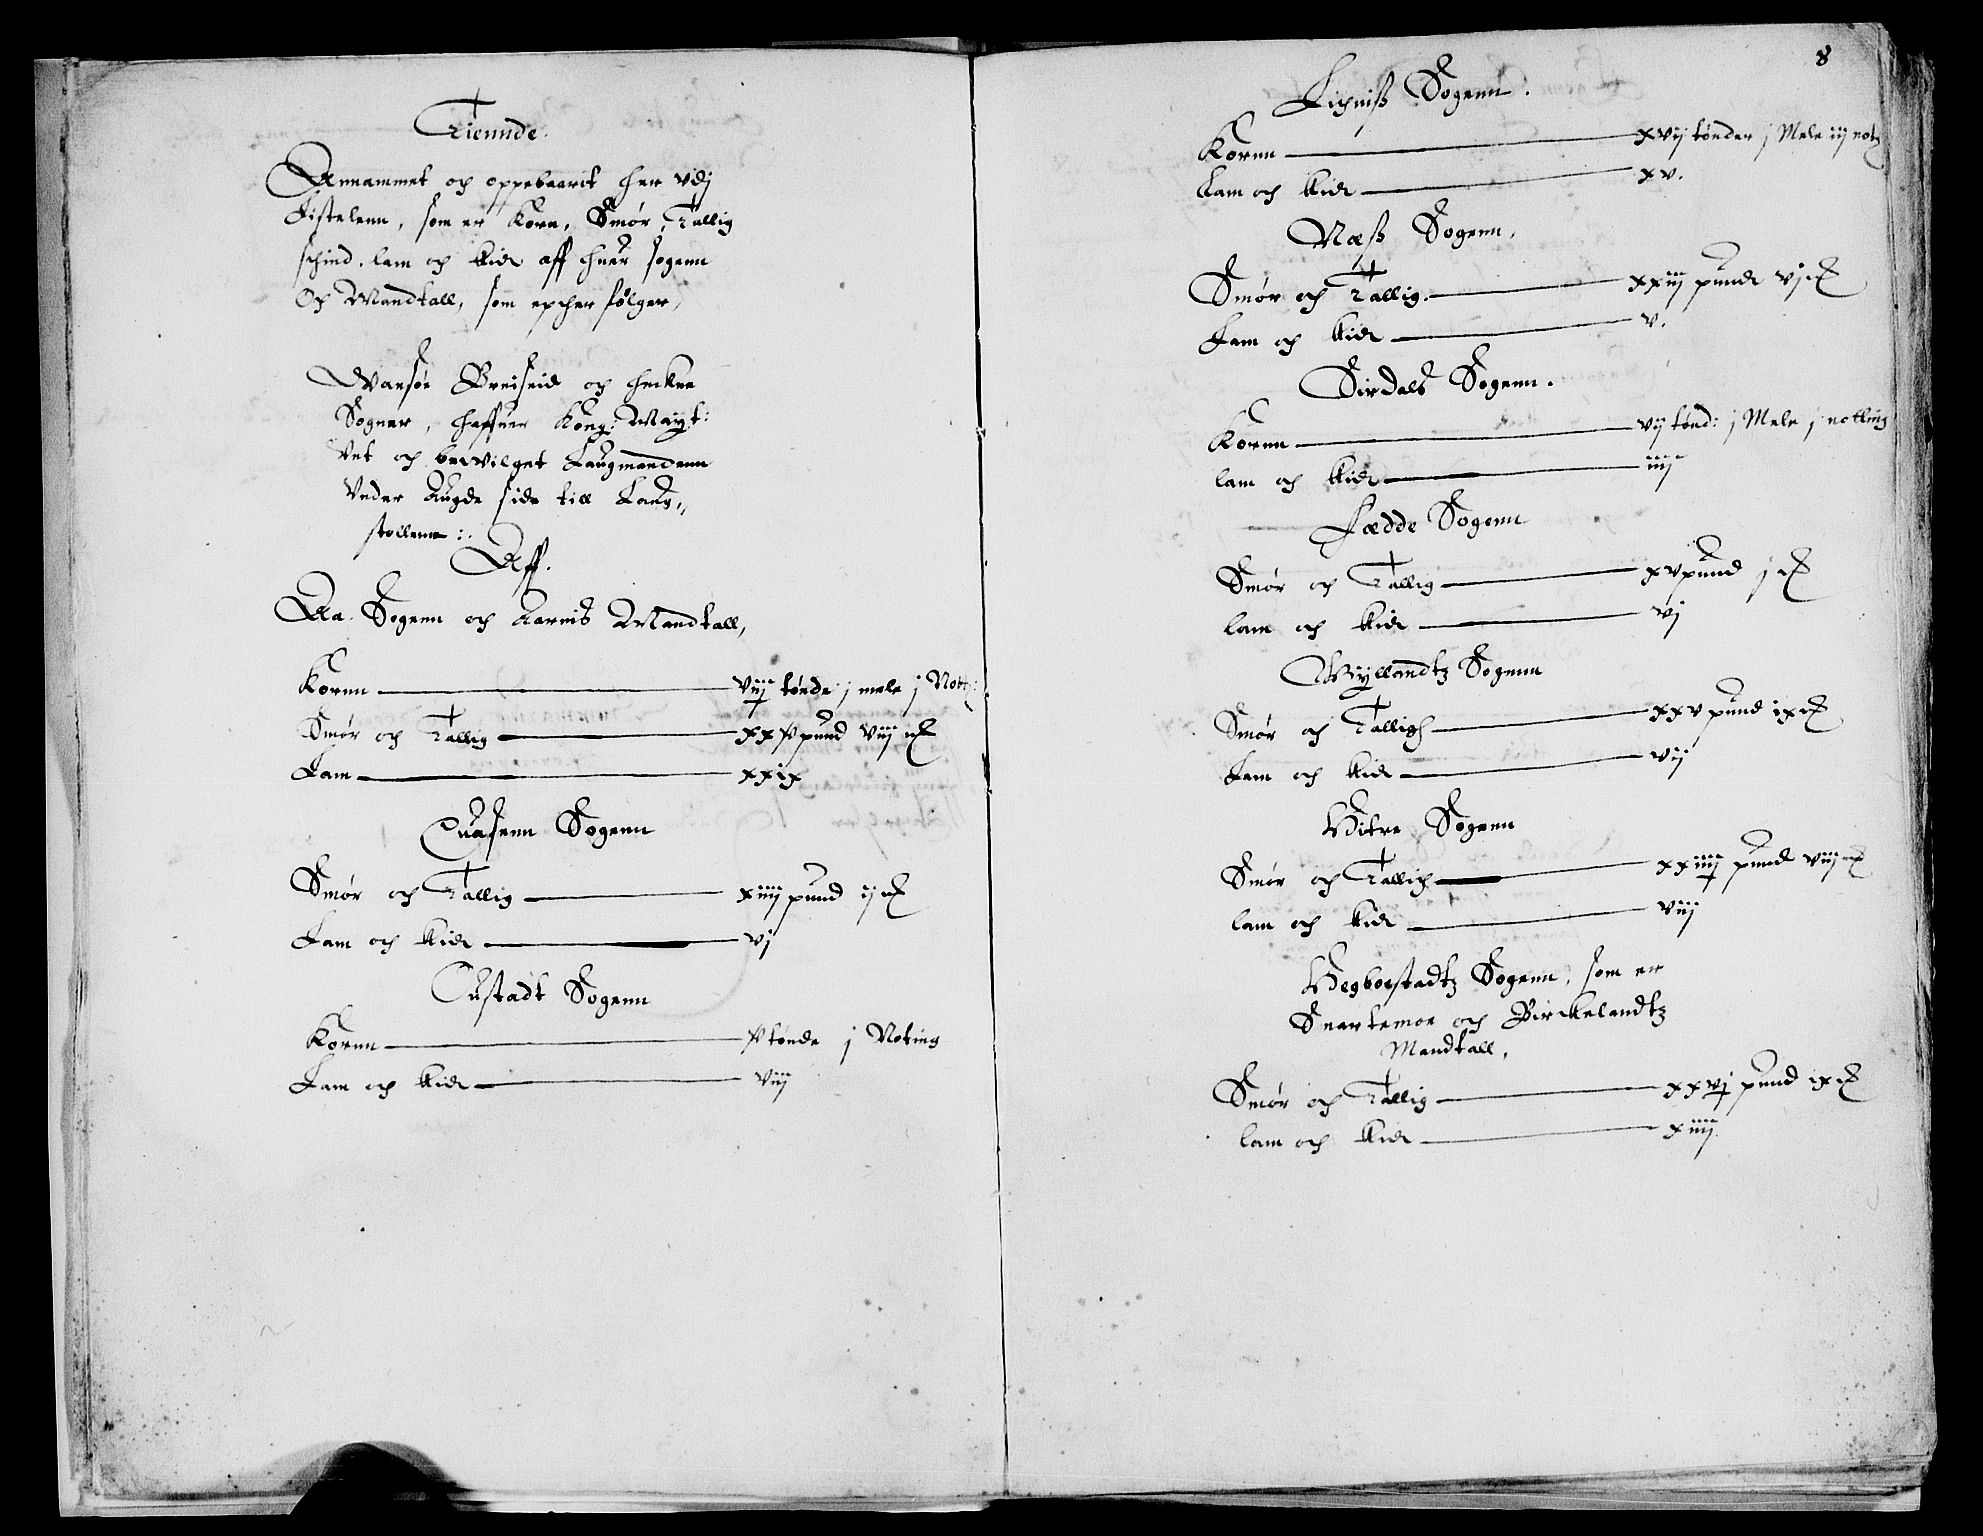 Tiennde.
Annammet och oppebaarit her vdj
Listelenn, som er Korn, Smør, Tallig
schind, lam och Kidt aff huer sogenn
Och Mandtall, som epther følger,
Wansøe Breiseid och
Sogner, haffuer Kong: Mayt:
bewilget Laugmandenn
Vnder Augde side till Laug„
stollenn :.
Aff.
Aa Sogenn och Aarnis Mandtall,
Kornn — viij tønde j mele j Nott:
Smør och Tallig — pund viij
Lam — xxix
Quasenn Sogenn
Smør och Tallig — xiiij pund ij
Lam och Kidt — vj
Austadt Sogenn
Kornn — tønde j Noting
Lam och Kidt — viij
8
Lichniß Sogenn.
Kornn — xvij tønder j Mele iij notz
Lam och Kidt — xv.
Næß Sogenn,
Smør och Tallig. — xxiij pundt vj
Lam och Kidt — v.
Sirdals Sogenn.
Kornn — vij tønd: j Mele j notting
lam och Kidt — iiij
Fædde Sogenn
Smør och Tallig — xv pund j
lam och Kidt — vj
Gyllandtz Sogenn
Smør och Talligh — xxv pund ix
Lam och Kidt — vij
Hitre Sogenn
Smør och Tallich — xxiiij pund viij
lam och Kidt — viij
Hegboestadtz Sogenn, som er
Snartemoe och Birckelandtz
Mandtall,
Smør och Tallig — xxvj pund ix
lam och Kidt — xiiij